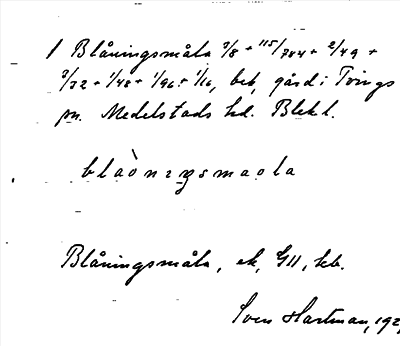 1 Blåningsmåla 3/8 + 115/784 + 2/49 +
3/32 + 1/48 + 1/96 + 1/16, beb. gård i Tvings
sn. Medelstads hd. Blek l.
blaònıŋsmaola
Blåningsmåla, ek, GII, kb.
Sven Hartman, 192